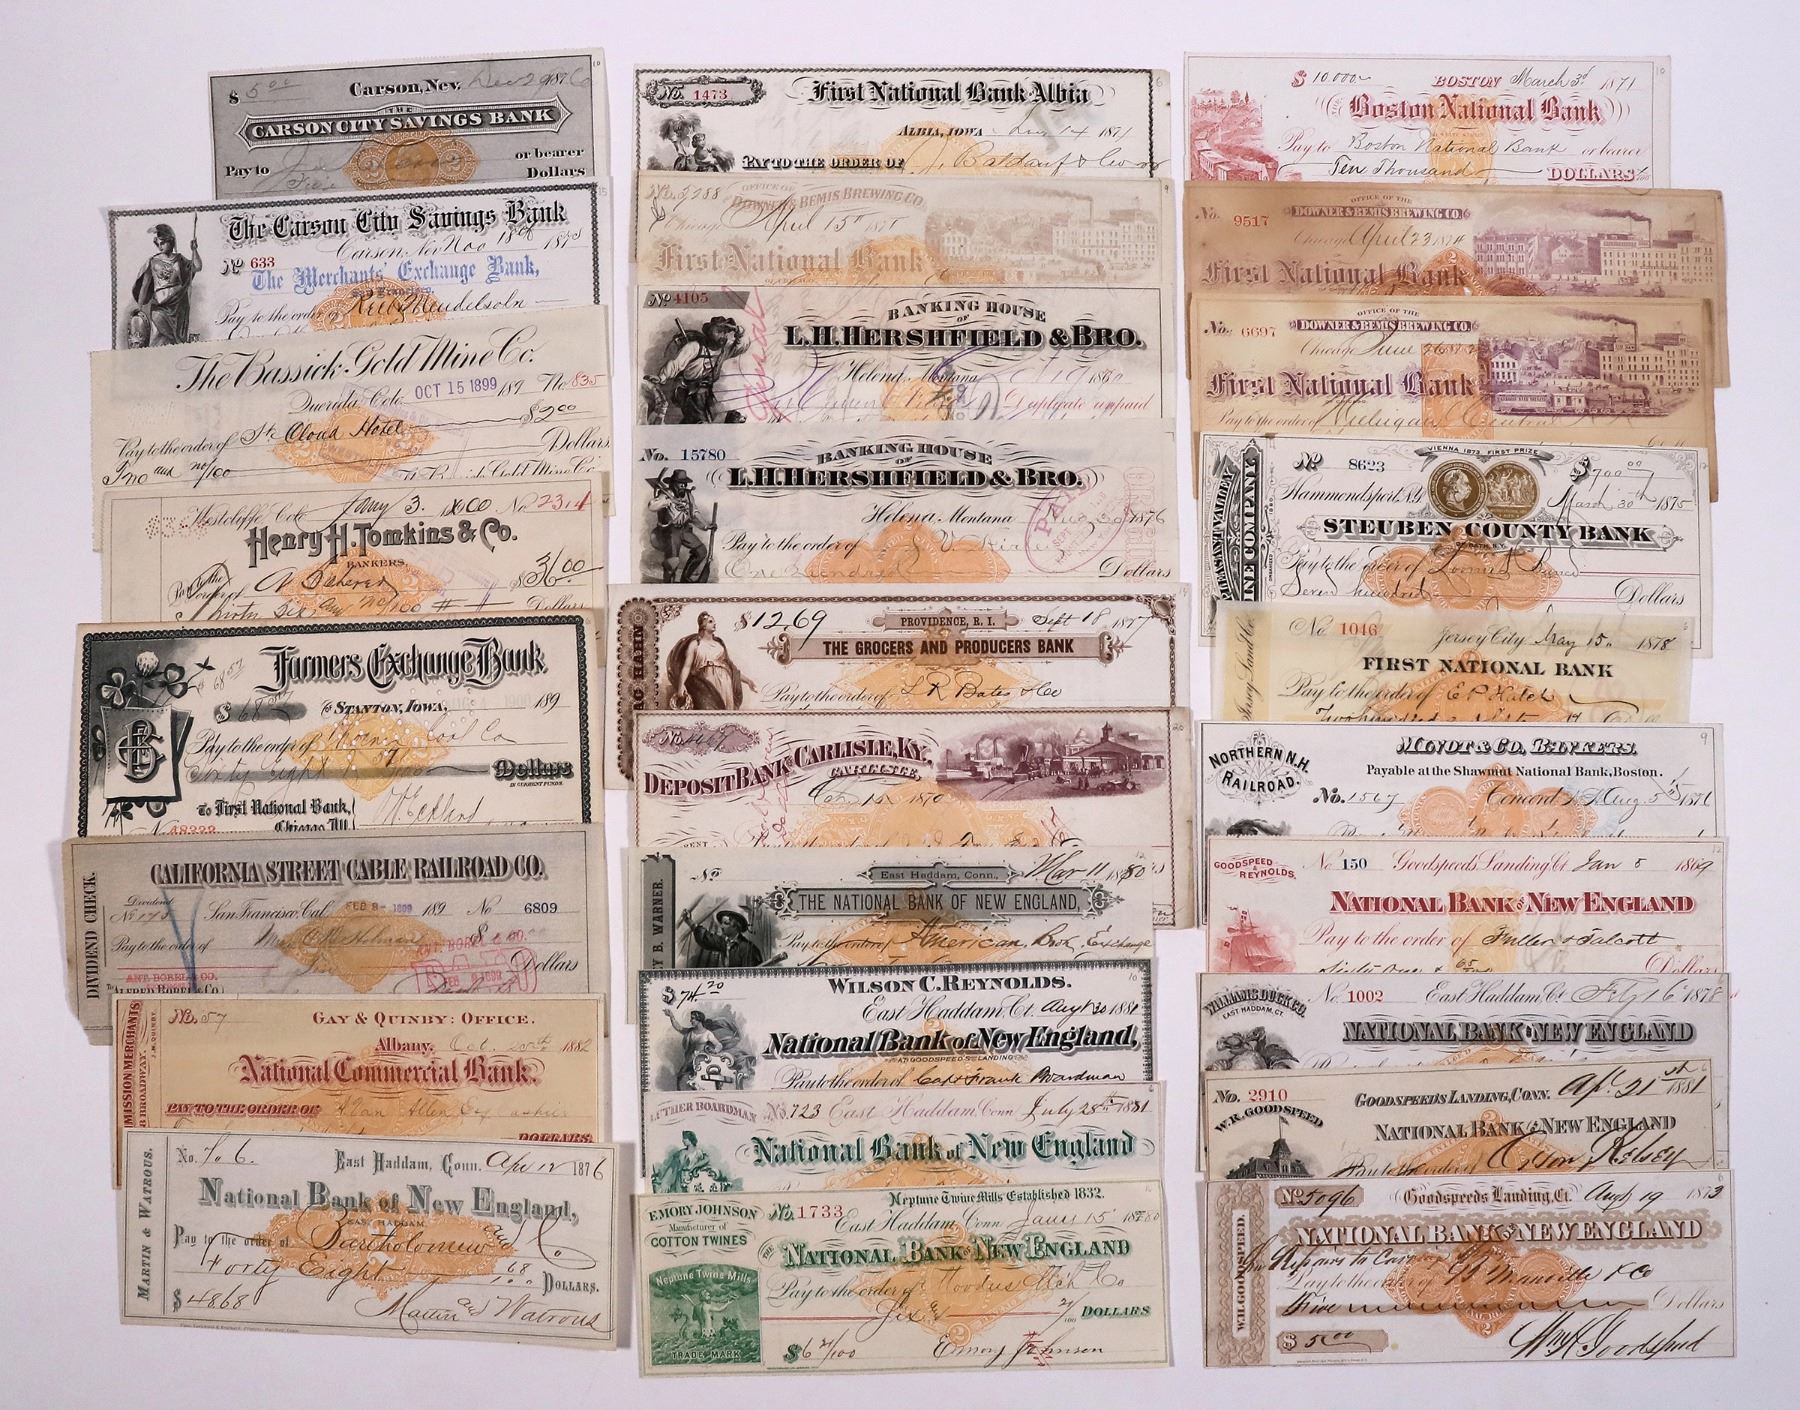 $ 5.00 Carson, Nev. Dec 29 1876
THE
CARSON CITY SAVINGS BANK
Pay to or bearer
Dollars
The Carson City Savings Bank
Carson, Nev. Nov 18th 187
No 633
The Merchants' Exchange Bank,
San Francisco.
Pay to the order of Mendelsohn
The Bassick Gold Mine Co.
OCT 15 1899 189 No 835
Querida, Colo.
$2.00
Pay to the order of St Cloud Hotel
Two and no/100 Dollars
The Bassick Gold Mine Co.
Westcliffe, Colo. Jany 3. 1900 No 2314
Henry H. Tomkins & Co.
BANKERS.
Pay to the order of $36.00
Thirty Six and no/100 Dollars
Farmers Exchange Bank
$ 68.57
$ 68.57 STANTON, IOWA, 189
Pay to the order of Phoenix Coal Co
Sixty Eight & 57/100 Dollars
IN CURRENT FUNDS.
To First National Bank,
Chicago Ill.
No 48222
DIVIDEND CHECK.
CALIFORNIA STREET CABLE RAILROAD CO.
Dividend
No 175 San Francisco, Cal. FEB 8- 1899 189 No 6809
Pay to the order of
ANT. BOREL & CO.
PAID
Dollars
ANT. BOREL & CO.
To ALFRED BOREL & CO.
COMMISSION MERCHANTS
BROADWAY. J.M. QUINBY.
No. 57 GAY & QUINBY: OFFICE.
Albany, Oct. 1882
National Commercial Bank.
PAY TO THE ORDER OF
DOLLARS.
MARTIN & WATROUS.
No. 706. East Haddam, Conn. Apr 12 1876
National Bank of New England,
EAST HADDAM,
Pay to the order of Bartholomew and Co
Forty Eight 68/100 DOLLARS.
$ 48.68 Martin and Watrous
No. 1473 First National Bank Albia
ALBIA, IOWA 14 1871
PAY TO THE ORDER OF
No. 3288 OFFICE OF
DOWNER & BEMIS BREWING CO.
Chicago April 15th 187
First National Bank
OF CHICAGO
No 4105
BANKING HOUSE
OF
L.H. HERSHFIELD & BRO.
Helena, Montana
Duplicate unpaid
No. 15780 BANKING HOUSE
OF
L.H. HERSHFIELD & BRO.
Helena, Montana 1876
PAID
Pay to the order of
One hundred Dollars
$12.69 PROVIDENCE, R. I. Sept 18 1877
THE GROCERS AND PRODUCERS BANK
Pay to the order of L R Bates & Co
No. 4467
DEPOSIT BANK OF CARLISLE, KY.
CARLISLE,
1870
BY B. WARNER.
No East Haddam, Conn., Mar 11 1880
THE NATIONAL BANK OF NEW ENGLAND,
Pay to the order of American Book Exchange
$74.20
WILSON C. REYNOLDS.
East Haddam, Ct. Augt 30 1881
National Bank of New England,
AT GOODSPEED'S LANDING
Pay to the order of Capt Frank Boardman
LUTHER BOARDMAN No. 723 East Haddam, Conn July 28th 1881
National Bank of New England
Neptune Twine Mills Established 1832.
EMORY JOHNSON
Manufacturer of
COTTON TWINES
No. 1733
East Haddam, Conn Jany 15 1880
THE NATIONAL BANK OF NEW ENGLAND
Neptune Twine Mills
TRADE MARK
Pay to the order of Moodus Mch Co
Six & 21/100 DOLLARS
$ 6 21/100 Emory Johnson
$ 10,000 BOSTON March 3d 1871
Boston National Bank
Pay to Boston National Bank or bearer
Ten Thousand DOLLARS
OFFICE OF THE
No. 9517 DOWNER & BEMIS BREWING CO.
Chicago April 23 1874
First National Bank
OFFICE OF THE
No. 6697 DOWNER & BEMIS BREWING CO.
Chicago June 26 187
First National Bank
OF CHICAGO
Pay to the order of Michigan Central
PLEASANT VALLEY
WINE COMPANY
No 8623
VIENNA 1873 FIRST PRIZE
$ 700.00
Hammondsport, N.Y. March 30th 1875
STEUBEN COUNTY BANK
OF BATH, N.Y.
Pay to the order of
Seven hundred Dollars
No. 1046 Jersey City May 15. 1878
FIRST NATIONAL BANK
Pay to the order of E P Hatch
NORTHERN N.H.
RAILROAD.
MINOT & CO. BANKERS.
Payable at the Shawmut National Bank, Boston.
No. 1567 Concord Aug 5 1876
GOODSPEED
&
REYNOLDS.
No 150 Goodspeeds Landing Ct Jan 5 1869
NATIONAL BANK OF NEW ENGLAND
Pay to the order of Fuller & Talcott
Sixty One & 65/100 Dollars
WILLIAMS DUCK CO.
EAST HADDAM, CT.
No. 1002 East Haddam, Ct. Feby 16th 1878
NATIONAL BANK OF NEW ENGLAND
No. 2910
W.R. GOODSPEED
GOODSPEED'S LANDING, CONN. Apl 21st 1881
NATIONAL BANK OF NEW ENGLAND
Pay to the order of Orson Kelsey
W.H. GOODSPEED.
No 5096 Goodspeeds Landing, Ct. Augt 19 1873
NATIONAL BANK OF NEW ENGLAND
Pay to the order of Manville & Co
Five Dollars
$ 5.00 Wm H. Goodspeed